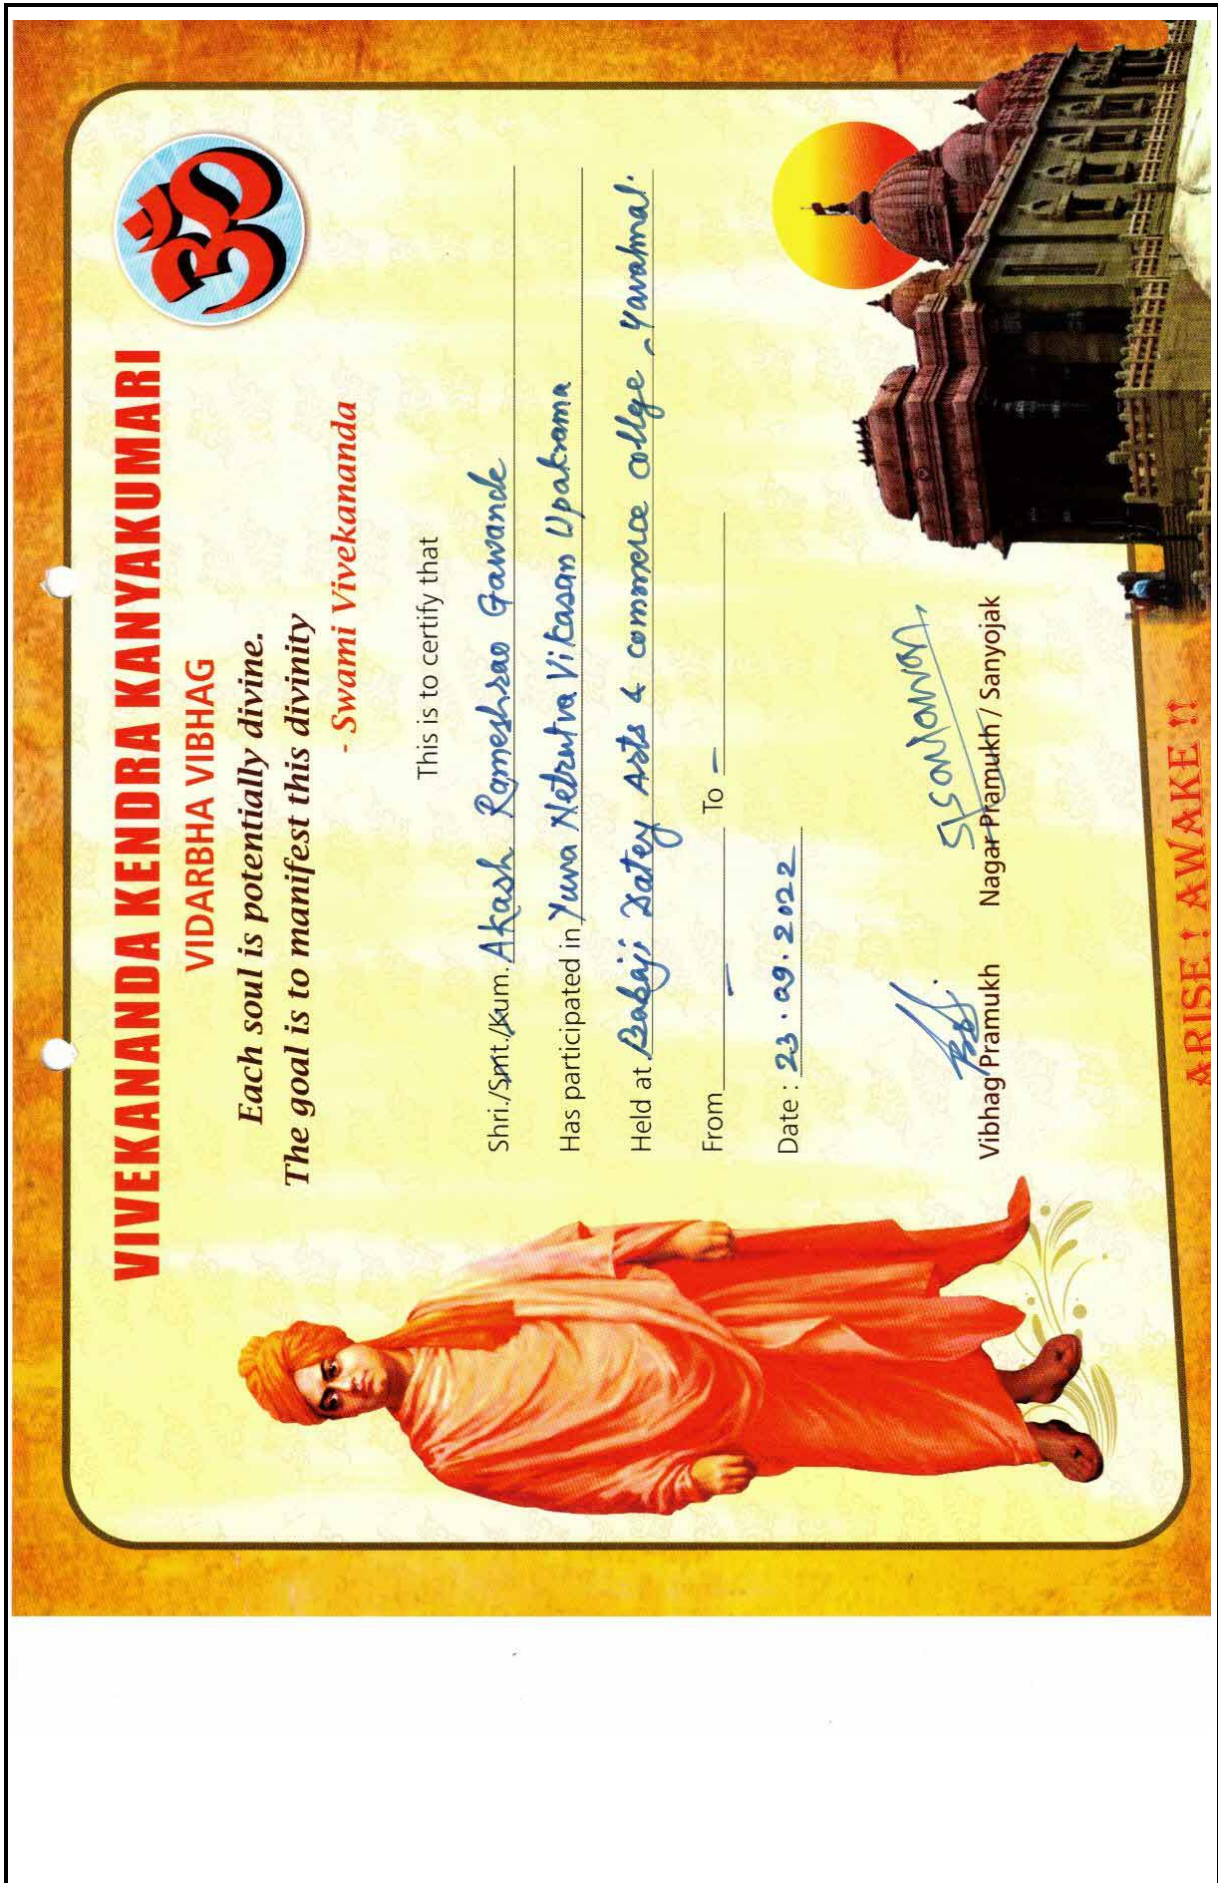 VIVEKANANDA KENDRA KANYAKUMARI
ॐ
VIDARBHA VIBHAG
Each soul is potentially divine.
The goal is to manifest this divinity
- Swami Vivekananda
This is to certify that
Shri./Smt./Kum. Akash Rameshrao Gawande
Has participated in Yuva Netrutva Vikasan Upakrama
Held at Babaji Datey Arts & commerce college - Yavatmal.
From - To -
Date : 23.09.2022
Vibhag Pramukh Nagar Pramukh / Sanyojak
ARISE ! AWAKE !!